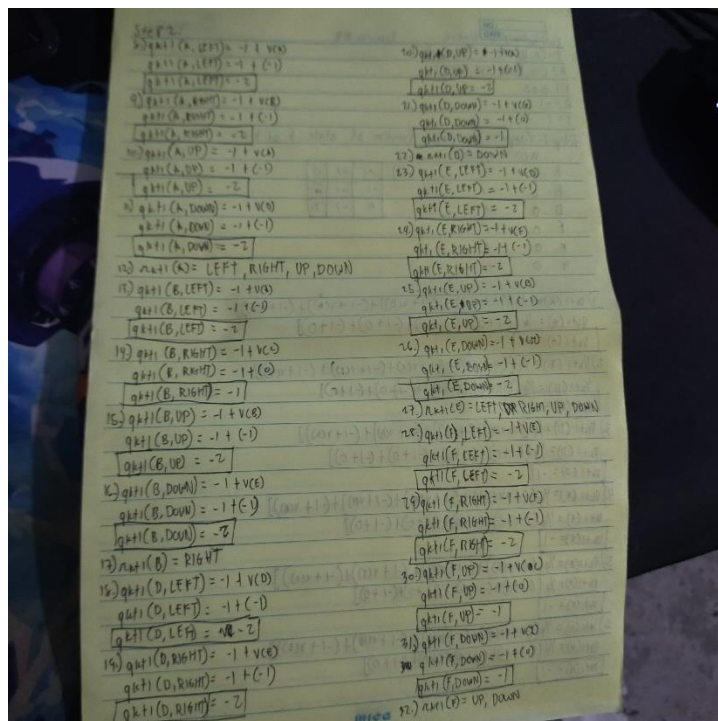 Step 2.
8.) qk+1 (A, LEFT) = -1 + V(A)
qk+1 (A, LEFT) = -1 + (-1)
qk+1 (A, LEFT) = -2
9.) qk+1 (A, RIGHT) = -1 + V(B)
qk+1 (A, RIGHT) = -1 + (-1)
qk+1 (A, RIGHT) = -2
10.) qk+1 (A, UP) = -1 + V(A)
qk+1 (A, UP) = -1 + (-1)
qk+1 (A, UP) = -2
11.) qk+1 (A, DOWN) = -1 + V(D)
qk+1 (A, DOWN) = -1 + (-1)
qk+1 (A, DOWN) = -2
12.) πk+1 (A) = LEFT, RIGHT, UP, DOWN
13.) qk+1 (B, LEFT) = -1 + V(A)
qk+1 (B, LEFT) = -1 + (-1)
qk+1 (B, LEFT) = -2
14.) qk+1 (B, RIGHT) = -1 + V(C)
qk+1 (B, RIGHT) = -1 + (0)
qk+1 (B, RIGHT) = -1
15.) qk+1 (B, UP) = -1 + V(B)
qk+1 (B, UP) = -1 + (-1)
qk+1 (B, UP) = -2
16.) qk+1 (B, DOWN) = -1 + V(E)
qk+1 (B, DOWN) = -1 + (-1)
qk+1 (B, DOWN) = -2
17.) πk+1 (B) = RIGHT
18.) qk+1 (D, LEFT) = -1 + V(D)
qk+1 (D, LEFT) = -1 + (-1)
qk+1 (D, LEFT) = -2
19.) qk+1 (D, RIGHT) = -1 + V(E)
qk+1 (D, RIGHT) = -1 + (-1)
qk+1 (D, RIGHT) = -2
20.) qk+1 (D, UP) = -1 + V(A)
qk+1 (D, UP) = -1 + (-1)
qk+1 (D, UP) = -2
21.) qk+1 (D, DOWN) = -1 + V(G)
qk+1 (D, DOWN) = -1 + (0)
qk+1 (D, DOWN) = -1
22.) πk+1 (D) = DOWN
23.) qk+1 (E, LEFT) = -1 + V(D)
qk+1 (E, LEFT) = -1 + (-1)
qk+1 (E, LEFT) = -2
24.) qk+1 (E, RIGHT) = -1 + V(F)
qk+1 (E, RIGHT) = -1 + (-1)
qk+1 (E, RIGHT) = -2
25.) qk+1 (E, UP) = -1 + V(B)
qk+1 (E, UP) = -1 + (-1)
qk+1 (E, UP) = -2
26.) qk+1 (E, DOWN) = -1 + V(H)
qk+1 (E, DOWN) = -1 + (-1)
qk+1 (E, DOWN) = -2
27.) πk+1 (E) = LEFT, RIGHT, UP, DOWN
28.) qk+1 (F, LEFT) = -1 + V(E)
qk+1 (F, LEFT) = -1 + (-1)
qk+1 (F, LEFT) = -2
29.) qk+1 (F, RIGHT) = -1 + V(F)
qk+1 (F, RIGHT) = -1 + (-1)
qk+1 (F, RIGHT) = -2
30.) qk+1 (F, UP) = -1 + V(C)
qk+1 (F, UP) = -1 + (0)
qk+1 (F, UP) = -1
31.) qk+1 (F, DOWN) = -1 + V(I)
qk+1 (F, DOWN) = -1 + (0)
qk+1 (F, DOWN) = -1
32.) πk+1 (F) = UP, DOWN